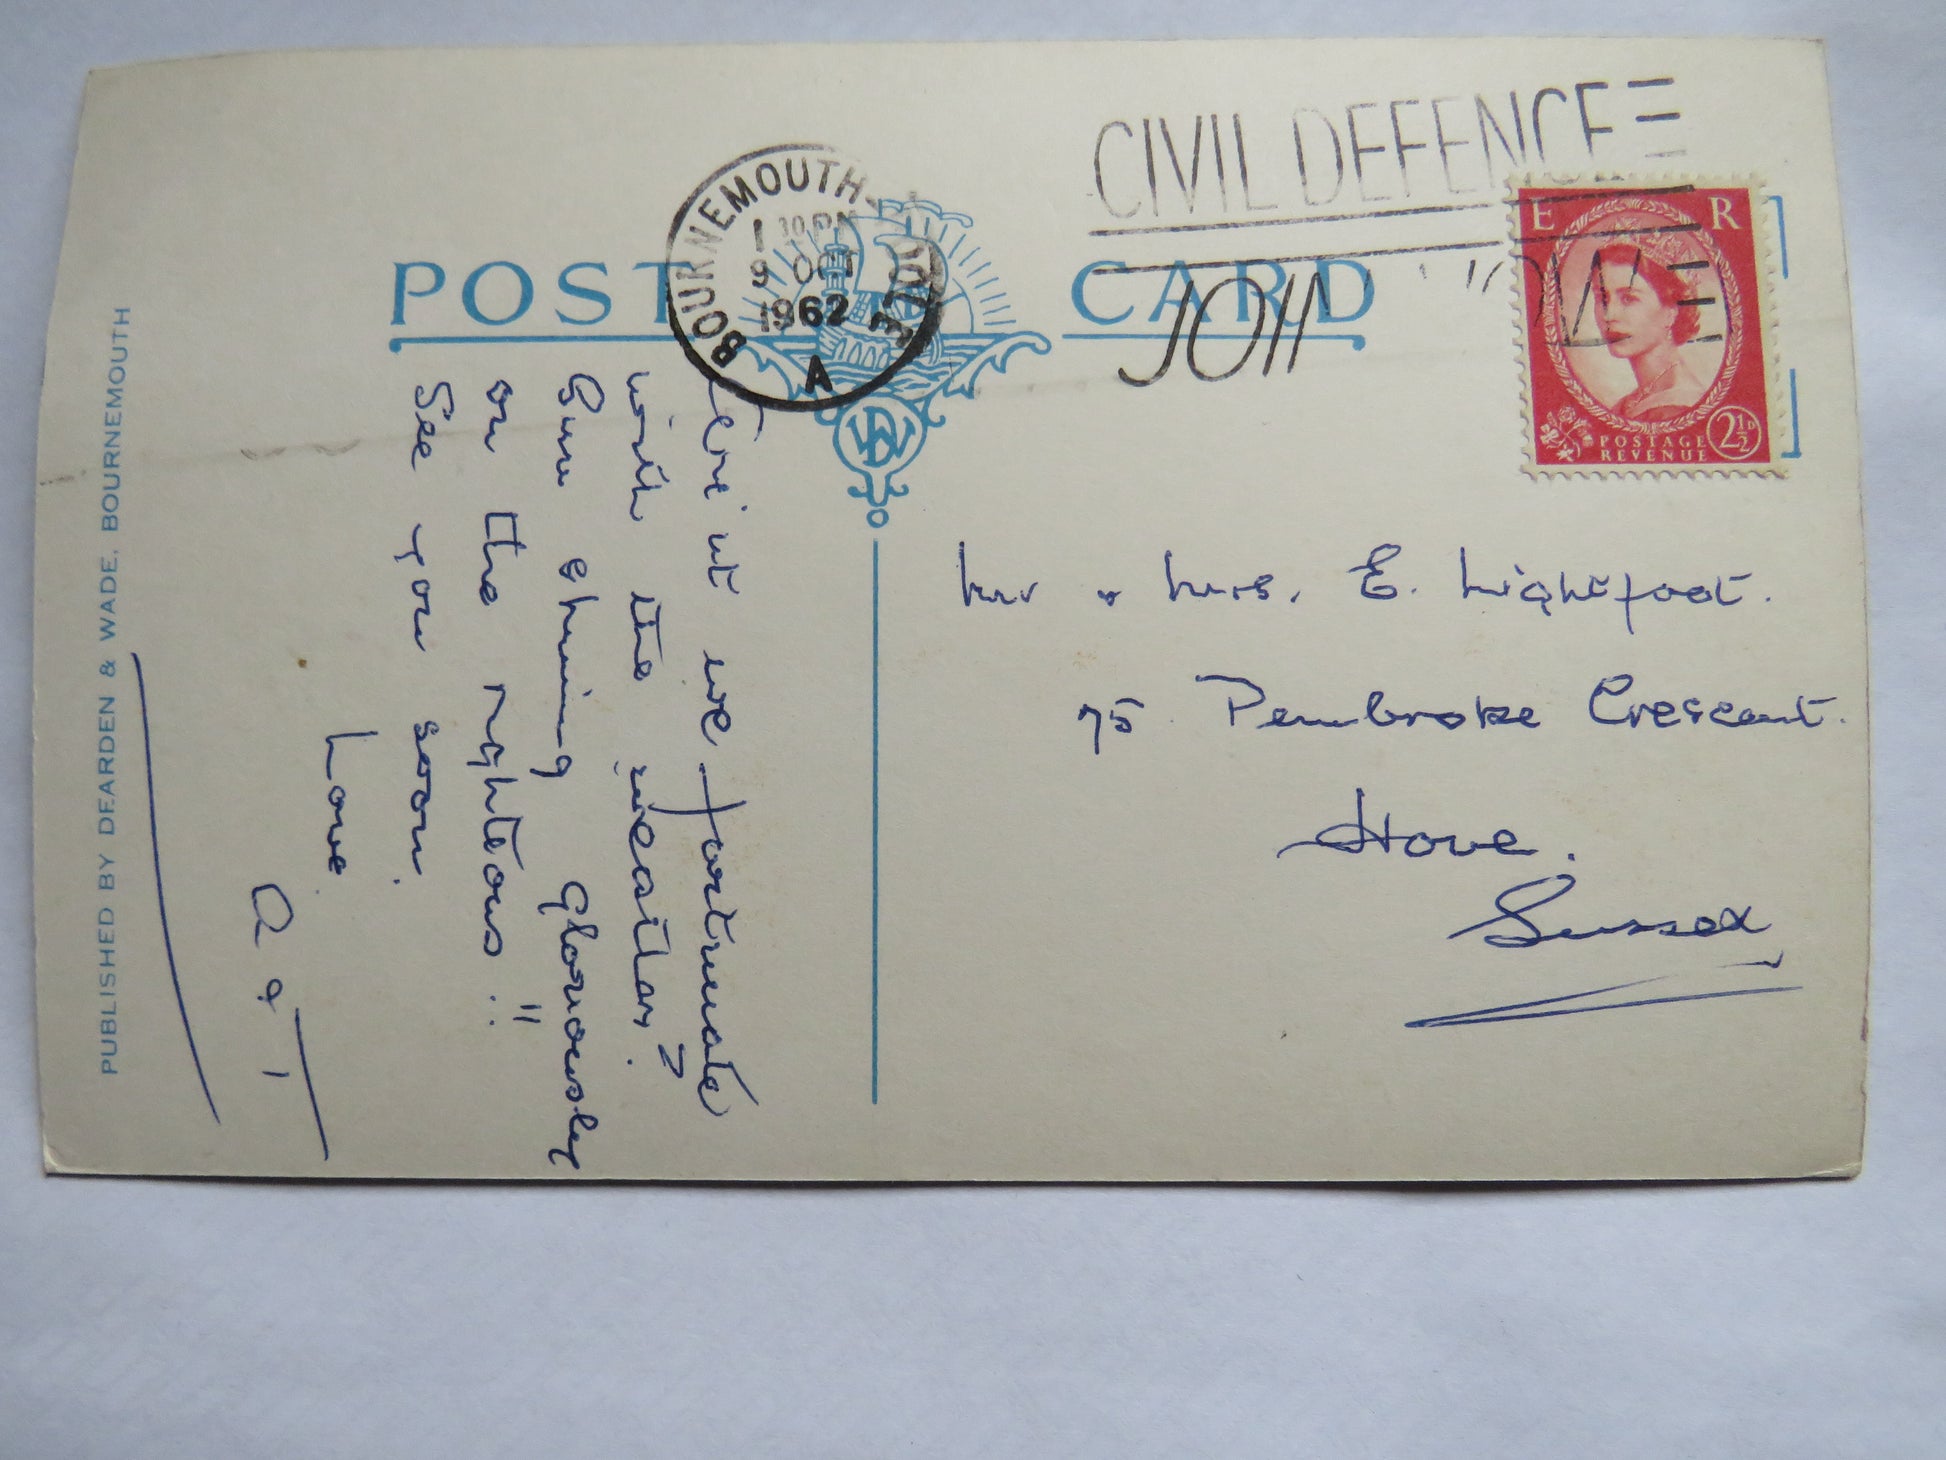 CIVIL DEFENCE
JOIN NOW
BOURNEMOUTH-POOLE
1 30 PM
9 OCT
1962
A
E R
POSTAGE
REVENUE
2½D
POST CARD
DBW
Mr & Mrs. E. Lightfoot.
75 Pembroke Crescent.
Hove.
Sussex,
Aren't we fortunate
with the weather?
Sun shining gloriously
on the righteous!!
See you soon.
Love
A & T
PUBLISHED BY DEARDEN & WADE, BOURNEMOUTH